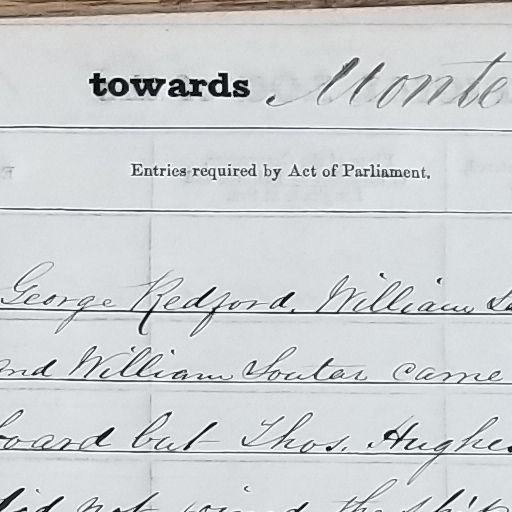 towards Monte
Entries required by Act of Parliament.
George Redford. William
and William Soutar came
board but Thos. Hughes
did not joined the ship